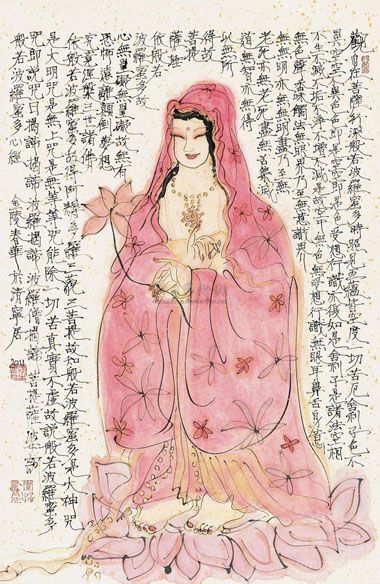 觀自在菩薩行深般若波羅蜜多時照見五蘊皆空度一切苦厄舍利子色不
異空空不異色色即是空空即是色受想行識亦復如是舍利子是諸法空相
不生不滅不垢不淨不增不減是故空中無色無受想行識無眼耳鼻舌身意
無色聲香味觸法無眼界乃至無意識界
無無明亦無無明盡乃至無
老死亦無老死盡無苦集滅
道無智亦無得
以無所
得故
菩提
薩埵
依般若
波羅蜜多故
心無罣礙無罣礙故無有
恐怖遠離顛倒夢想
究竟涅槃三世諸佛
依般若波羅蜜多故得阿耨多羅三藐三菩提故知般若波羅蜜多是大神咒
是大明咒是無上咒是無等等咒能除一切苦真實不虛故說般若波羅蜜多
咒即說咒曰揭諦揭諦波羅揭諦波羅僧揭諦菩提薩婆訶
般若波羅蜜多心經
金陵春華於清寧居
2011